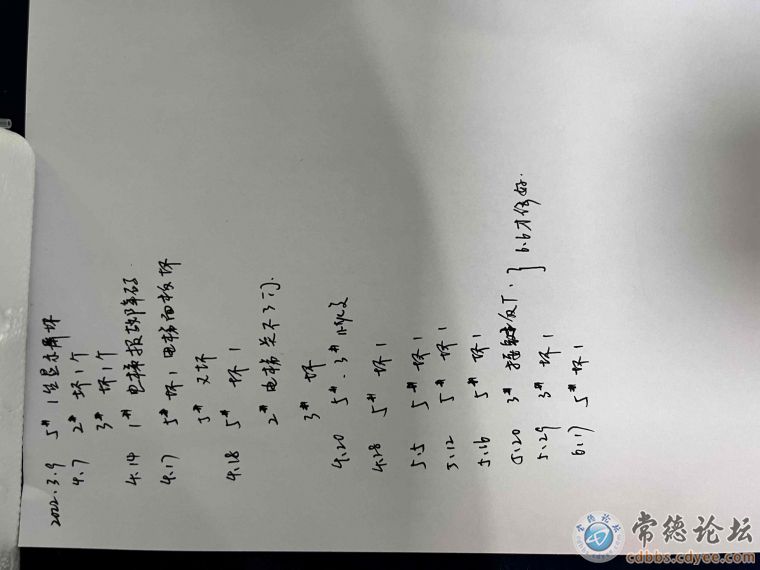 2022.3.9 5# 1坐显示屏坏
4.7 2# 坏1个
3# 坏1个
4.14 1# 电梯报故障码
4.17 5# 坏1 电梯面板坏
5# 又坏
4.18 5# 坏1
2# 电梯关不了门
3# 坏
4.20 5#.3#
4.28 5# 坏1
5.5 5# 坏1
5.12 5# 坏1
5.16 5# 坏1
5.20 3#
5.29 3# 坏1
} 6.6才修好.
6.17 5# 坏1
常德论坛
cdbbs.cdyee.com